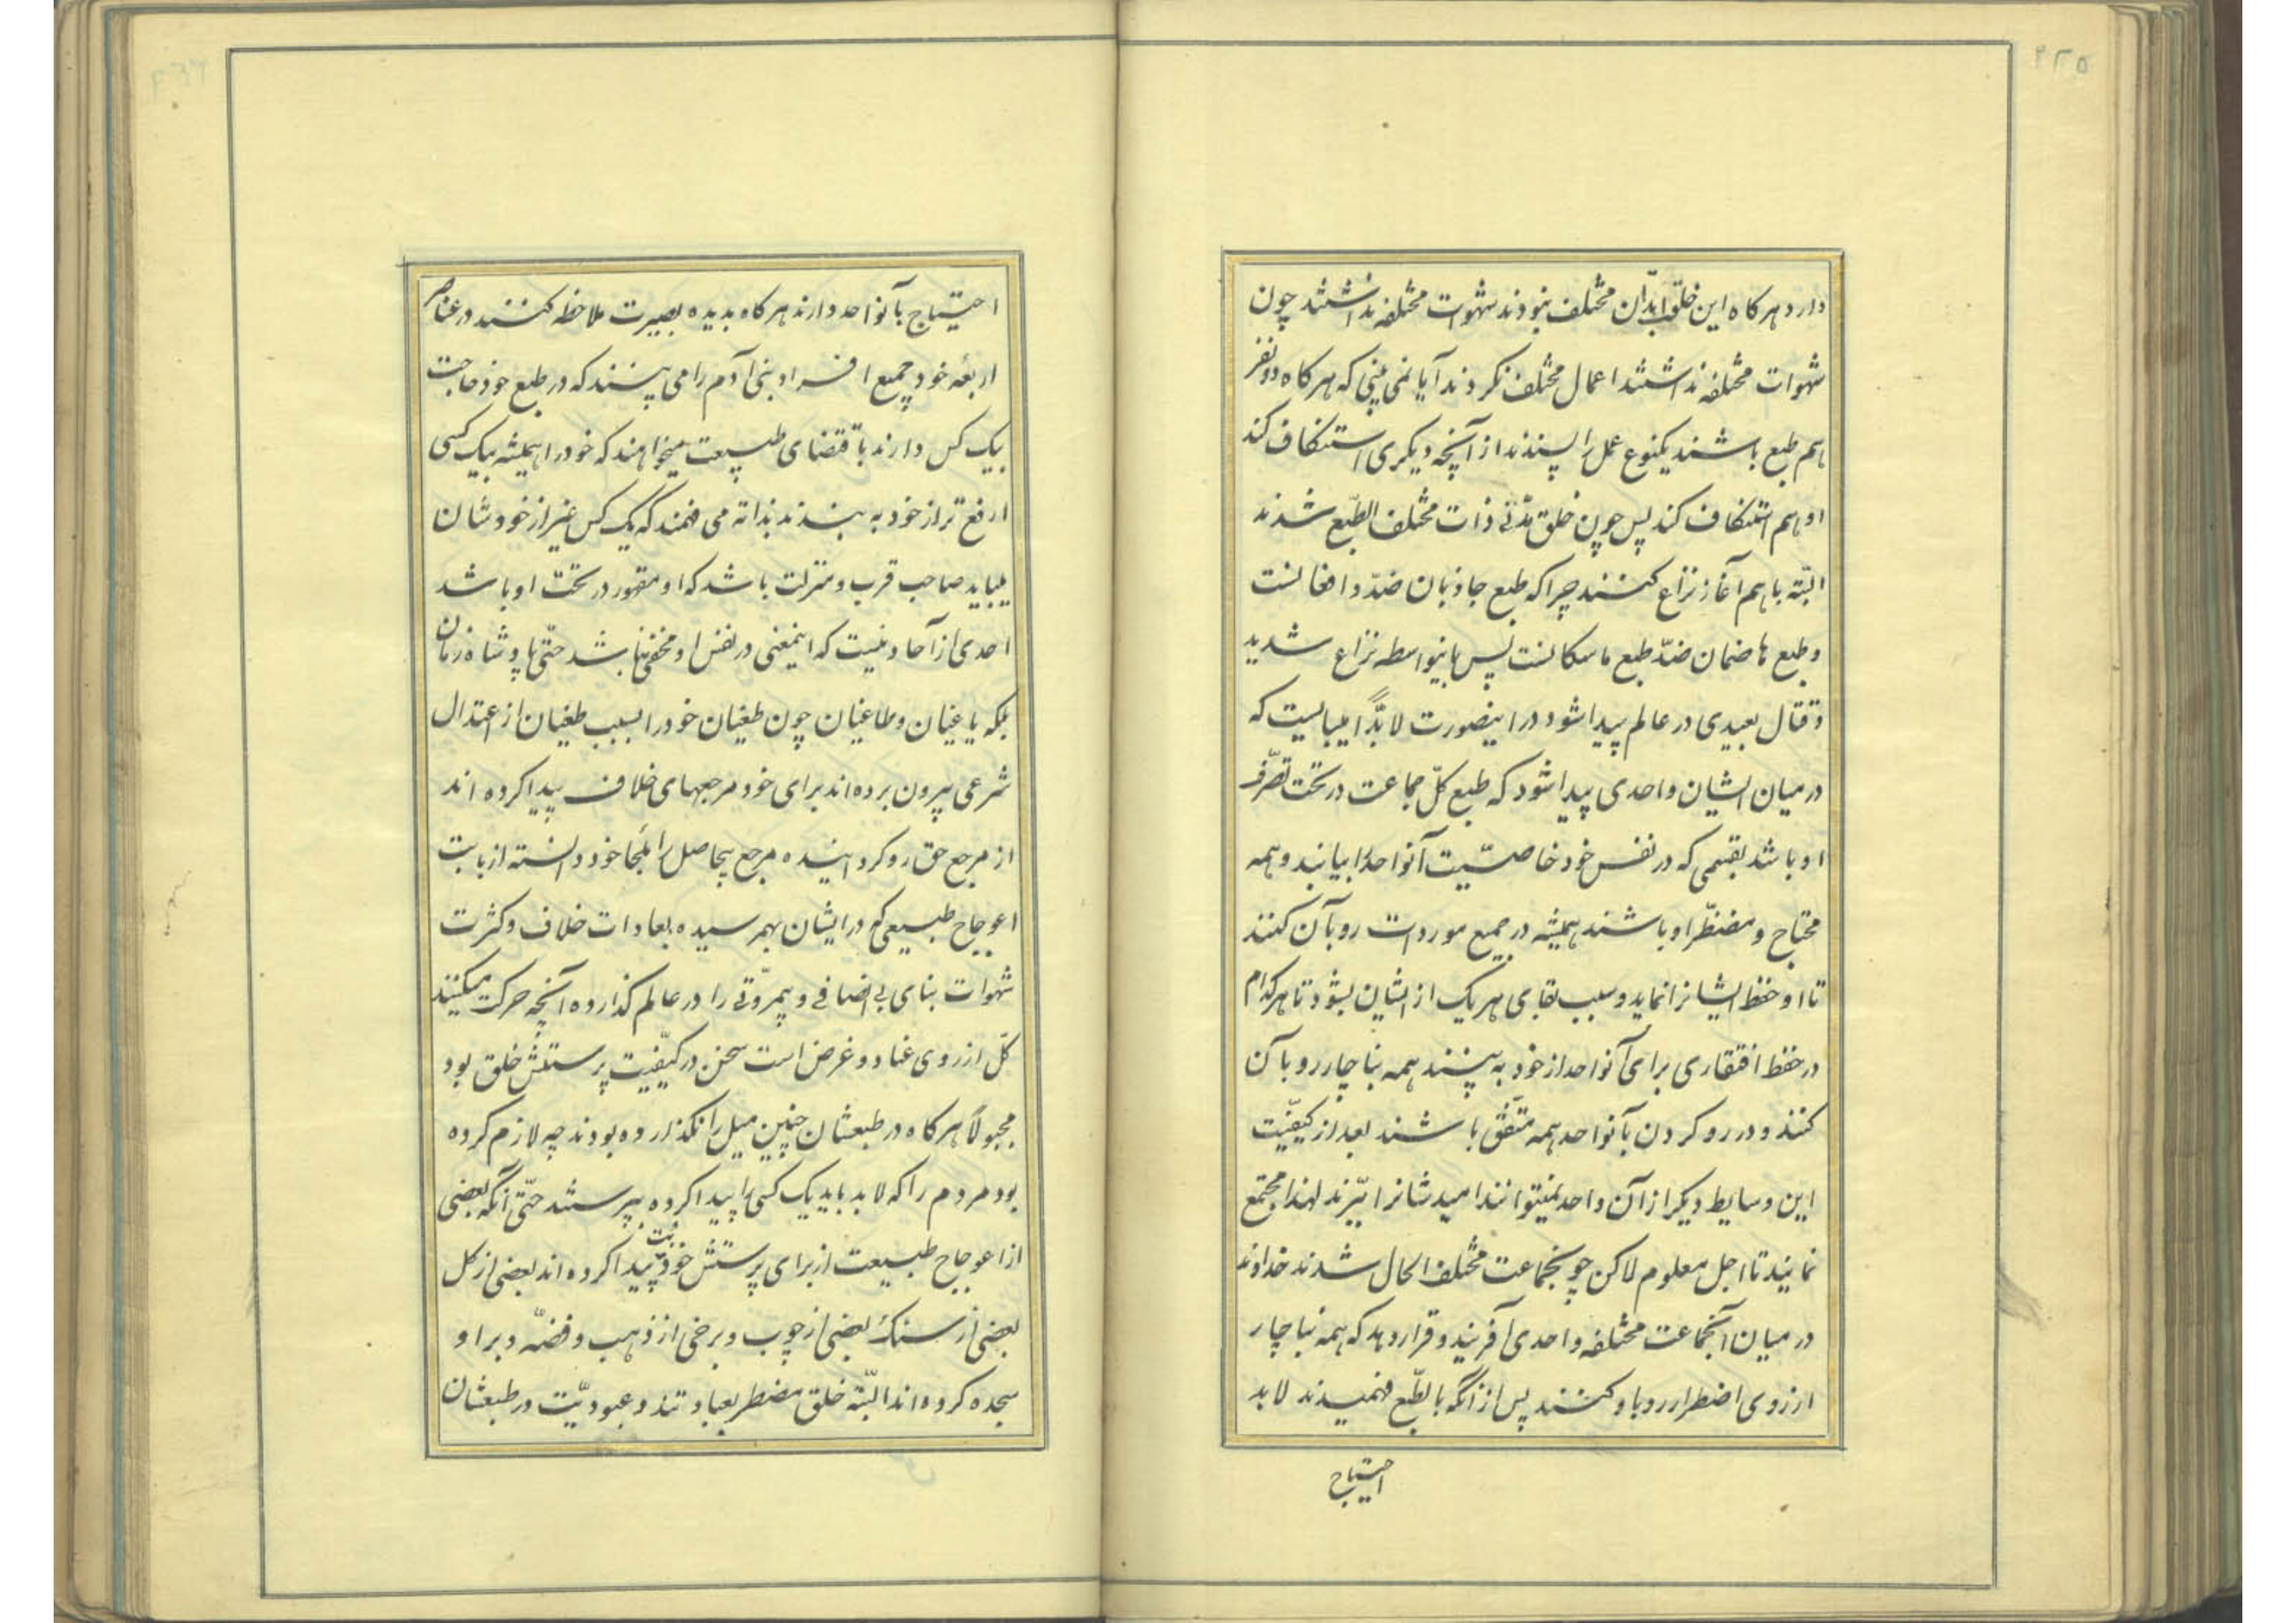 ۴۲۵
دارد هرکاه این خلق ابدان مختلف نبودند شهوات مختلفه نداشتند چون
شهوات مختلفه نداشتند اعمال مختلف نکردند آیا نمی بینی که هرکاه دو نفر
هم طبع باشند یکنوع عمل را پسندند از آنچه دیکری استنکاف کند
او هم استنکاف کند پس چون خلق مختلف الطبع شدند
البتّه با هم آغاز نزاع کنند چرا که طبع جاذبان ضدّ دافعانست
و طبع هاضمان ضدّ طبع ماسکانست پس باینواسطه نزاع شدید
و قتال بعیدی در عالم پیدا شود در اینصورت لابدّاً میبایست که
در میان ایشان واحدی پیدا شود که طبع کلّ جماعت در تحت تصرّف
او باشد بقسمی که در نفس خود خاصیّت آنواحد را بیابند و همه
محتاج و مضطرّ او باشند همیشه در جمیع موردات رو بآن کنند
تا او حفظ ایشانرا نماید و سبب بقای هر یک از ایشان بشود تا هر کدام
در حفظ افتقاری برای آنواحد از خود به بینند همه بناچار رو بآن
کنند و در رو کردن بآنواحد همه متّفق باشند بعد از کیفیّت
این وسایط دیکر از آن واحد نمیتوانند امیدشانرا ببّرند لهذا مجتمع
نمایند تا اجل معلوم لاکن چون جماعت مختلف الحال شدند خداوند
در میان آنجماعت مختلفه واحدی آفریند و قرار دهد که همه بناچار
از روی اضطرار رو باو کنند پس از آنکه بالطّبع فهمیدند لابد
احتیاج
احتیاج بآنواحد دارند هرکاه بدیده بصیرت ملاحظه کنند در عناصر
اربعه خود جمیع افراد بنی آدم را می بینند که در طبع خود حاجت
بیک کس دارند باقتضای طبیعت میخواهند که خود را همیشه بیک کسی
ارفع تر از خود به بندند بذاته می فهمند که یک کس غیر از خودشان
میباید صاحب قرب و منزلت باشد که او مقهور در تحت او باشد
احدی از آحاد نیست که اینمعنی در نفس او مخفی نباشد حتّی پادشاه زمان
بلکه یاغیان و طاغیان چون طغیان خود را بسبب طغیان از اعتدال
شرعی بیرون برده اند برای خود مرجعهای خلاف پیدا کرده اند
از مرجع حق رو کردانیده مرجع بیحاصل را ملجا خود دانسته از بابت
اعوجاج طبیعی که در ایشان بهمرسیده بعادات خلاف و کثرت
شهوات بنای بی انصافی و بیمروّتی را در عالم کذارده آنچه حرکت میکنند
کلّ از روی عناد و غرض است سخن در کیفیّت پرستش خلق بود
مجبولاً هرکاه در طبعشان چنین میل را نکذارده بودند چه لازم کرده
بود مردم را که لابد باید یک کسی را پیدا کرده بپرستند حتّی آنکه بعضی
از اعوجاج طبیعت از برای پرستش خود بت پیدا کرده اند بعضی از کل
بعضی از سنک بعضی از چوب و برخی از ذهب و فضّه و بر او
سجده کرده اند البتّه خلق مضطر بعبادتند و عبودیّت در طبعشان